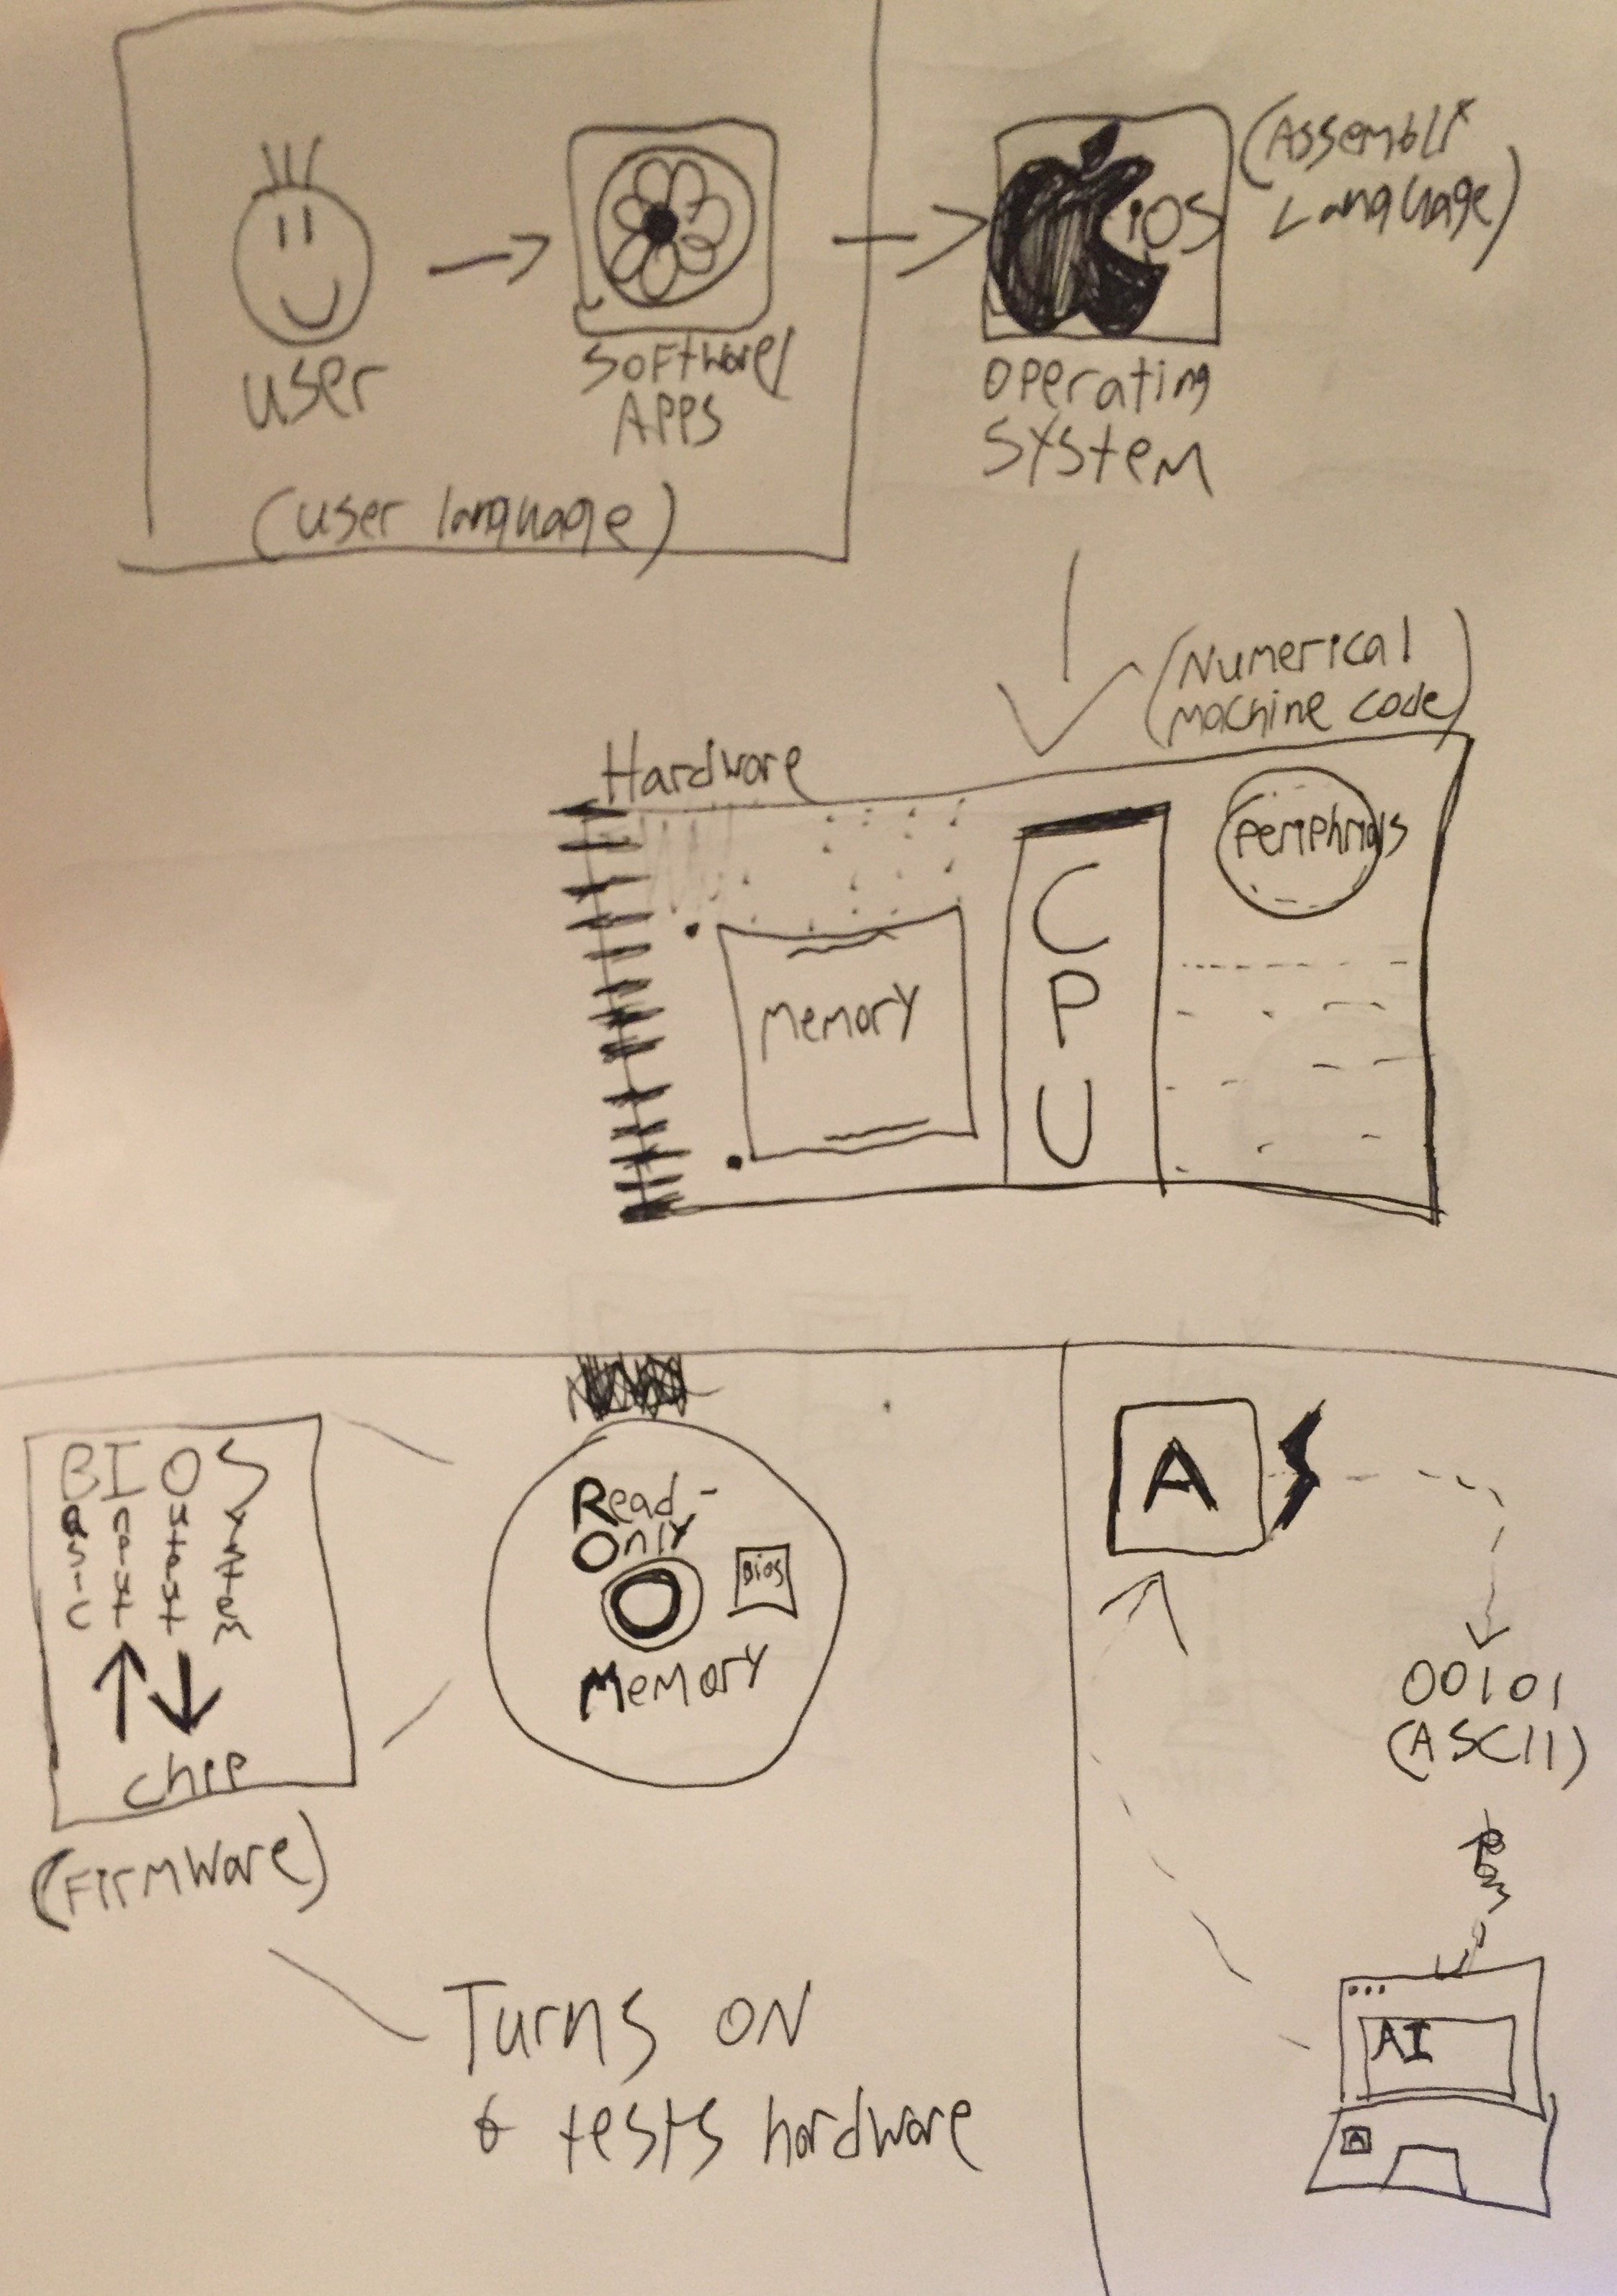 user
SOFtware/
APPS
(user language)
iOS
OPerating
SYSteM
(Assembly
Language)
(Numerical
Machine code)
Hardware
Memory
CPU
PeriPhrials
BIOS
Basic Input Output System
chip
(FirmWare)
Read-
Only
Memory
BiOS
Turns ON
& tests hardware
A
00101
(ASCII)
AI
A